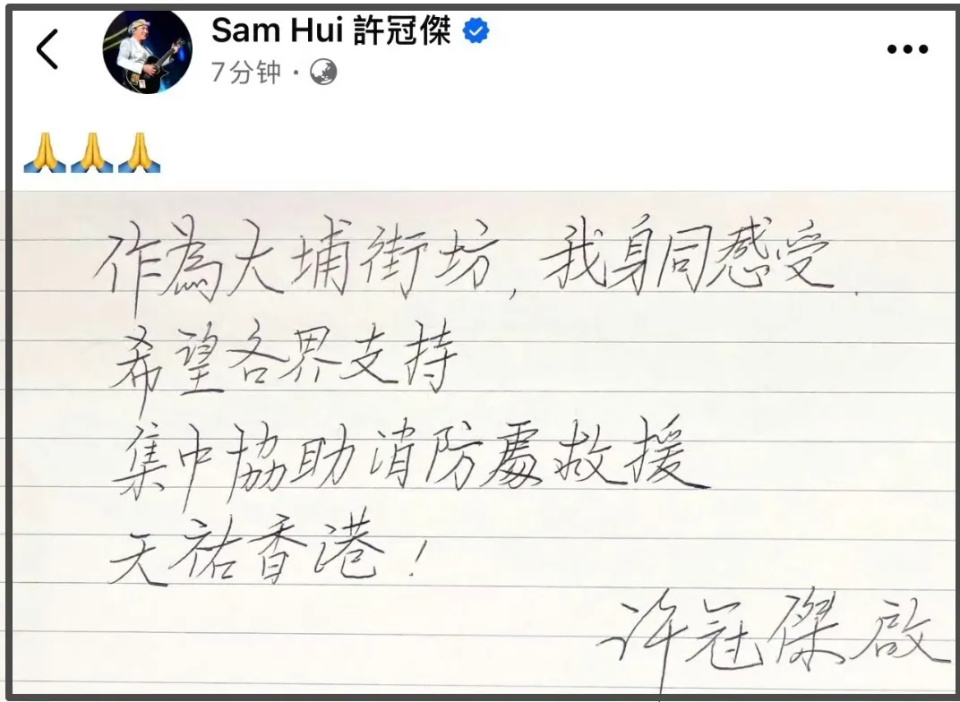 Sam Hui 許冠傑
7分钟
🙏🙏🙏
作為大埔街坊，我身同感受.
希望各界支持
集中協助消防處救援
天祐香港！
许冠傑 啟